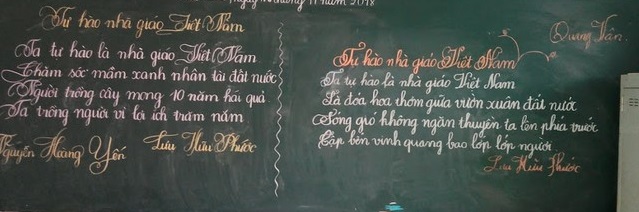 ngày tháng 11 năm 2018
Tự hào nhà giáo Việt Nam
Ta tự hào là nhà giáo Việt Nam
Chăm sóc mầm xanh nhân tài đất nước
Người trồng cây mong 10 năm hái quả
Ta trồng người vì lợi ích trăm năm
Nguyễn Hoàng Yến Lưu Hữu Phước
Quang Vân.
Tự hào nhà giáo Việt Nam
Ta tự hào là nhà giáo Việt Nam
Là đóa hoa thơm giữa vườn xuân đất nước
Sóng gió không ngăn thuyền ta lên phía trước
Cập bến vinh quang bao lớp lớp người
Lưu Hữu Phước